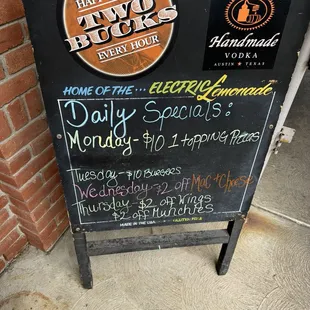 HAPPY
TWO
BUCKS
EVERY HOUR
Handmade
VODKA
AUSTIN ★ TEXAS
HOME OF THE... ELECTRIC Lemonade
Daily Specials:
Monday - $10 1 topping Pizzas
Tuesday - $10 Burgers
Wednesday - $2 off Mac & Cheese
Thursday - $2 off Wings
$2 off Munchies
MADE IN THE USA